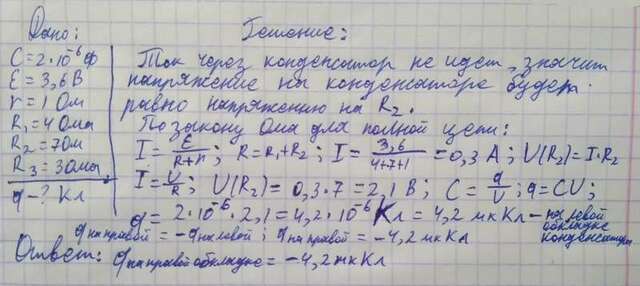 Дано:
Решение:
C = 2·10⁻⁶ Ф
ℰ = 3,6 В
r = 1 Ом
R₁ = 4 Ома
R₂ = 7 Ом
R₃ = 3 Ома
q - ? Кл
Ток через конденсатор не идет, значит
напряжение на конденсаторе будет
равно напряжению на R₂.
По закону Ома для полной цепи:
I = ℰ/(R+r); R = R₁+R₂; I = 3,6/(4+7+1) = 0,3 А; U(R₂) = I·R₂
I = U/R; U(R₂) = 0,3·7 = 2,1 В; C = q/U; q = CU;
q = 2·10⁻⁶·2,1 = 4,2·10⁻⁶ Кл = 4,2 мкКл – на левой
обкладке
конденсатора
q на правой = -q на левой; q на правой = -4,2 мкКл
Ответ: q на правой обкладке = -4,2 мкКл